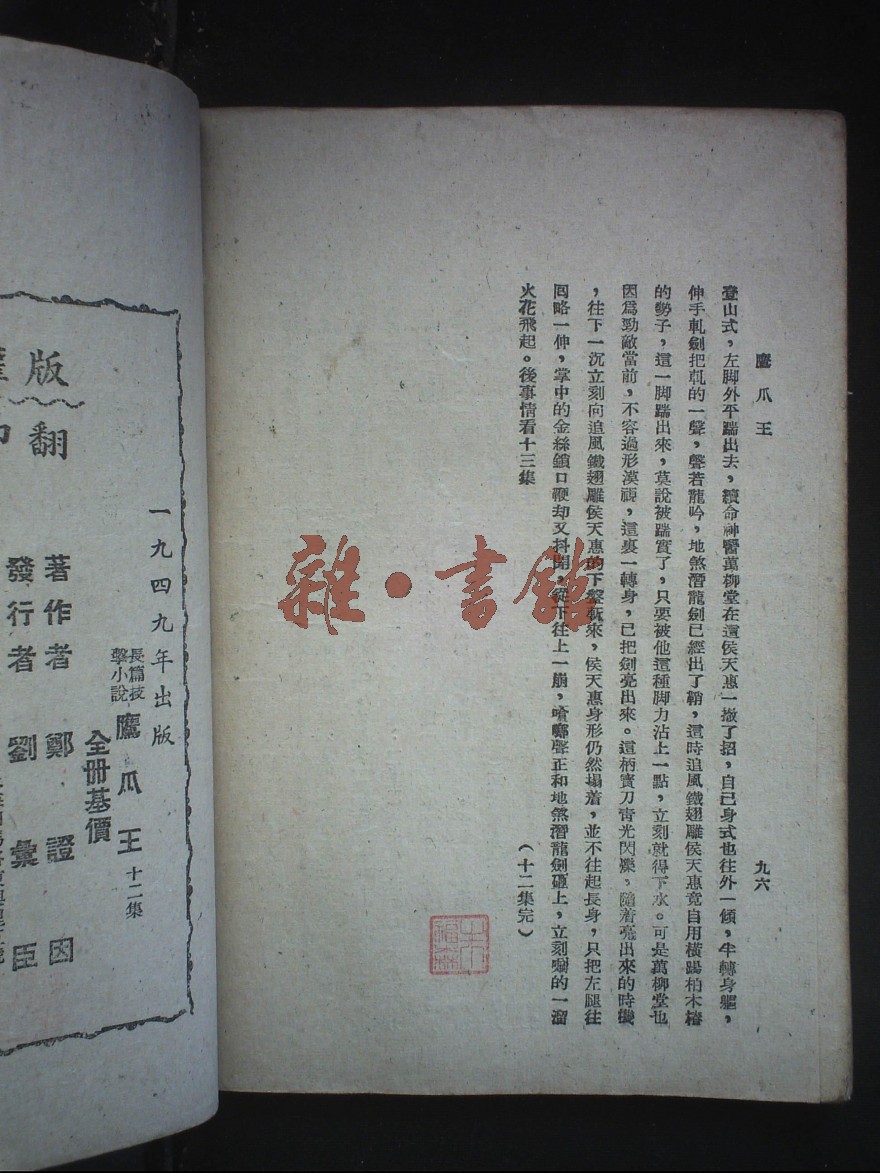 鷹爪王
九六
登山式，左脚外平踹出去，續命神醫萬柳堂在這侯天惠一撤了招，自己身式也往外一傾，半轉身軀，
伸手軋劍把䥇的一聲，聲若龍吟，地煞潛龍劍已經出了鞘，這時追風鐵翅雕侯天惠竟自用橫踢柏木樁
的勢子，這一脚踹出來，莫說被踹實了，只要被他這種脚力沾上一點，立刻就得下水。可是萬柳堂也
因爲勁敵當前，不容過形漠視，這裏一轉身，已把劍亮出來。這柄寳刀靑光閃爍，隨着亮出來的時機
，往下一沉立刻向追風鐵翅雕侯天惠的下盤斬來，侯天惠身形仍然塌着，並不往起長身，只把左腿往
囘略一伸，掌中的金絲鎖口鞭却又抖開，從下往上一崩，嗆啷聲正和地煞潛龍劍碰上，立刻唰的一溜
火花飛起。後事情看十三集
（十二集完）
雜·書館
版
翻
一九四九年出版
長篇技擊小說
鷹爪王
十二集
全册基價
著作者 鄭證因
發行者 劉彙臣